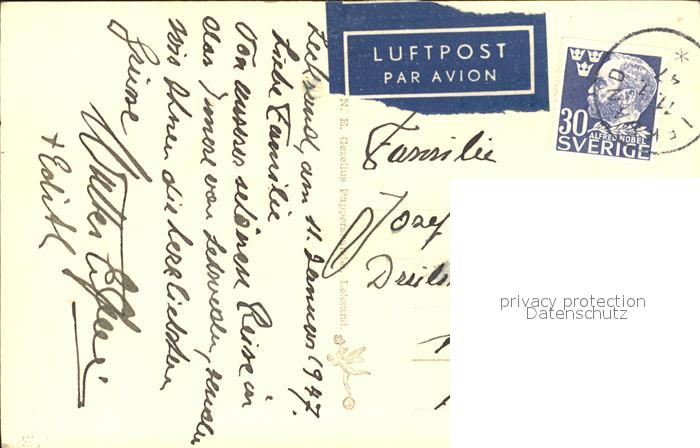 Leksand, am 11. Januar 1947.
Liebe Familie
Von unserer schönen Reise in
das Innere von Schweden, senden
Wir Ihnen die herzlichsten
Grüsse
Walter
+ Edith
N. E. Gezelius Pappershandel, Leksand.
LUFTPOST
PAR AVION
30
ALFRED NOBEL
SVERIGE
47
Familie
Josef
privacy protection
Datenschutz